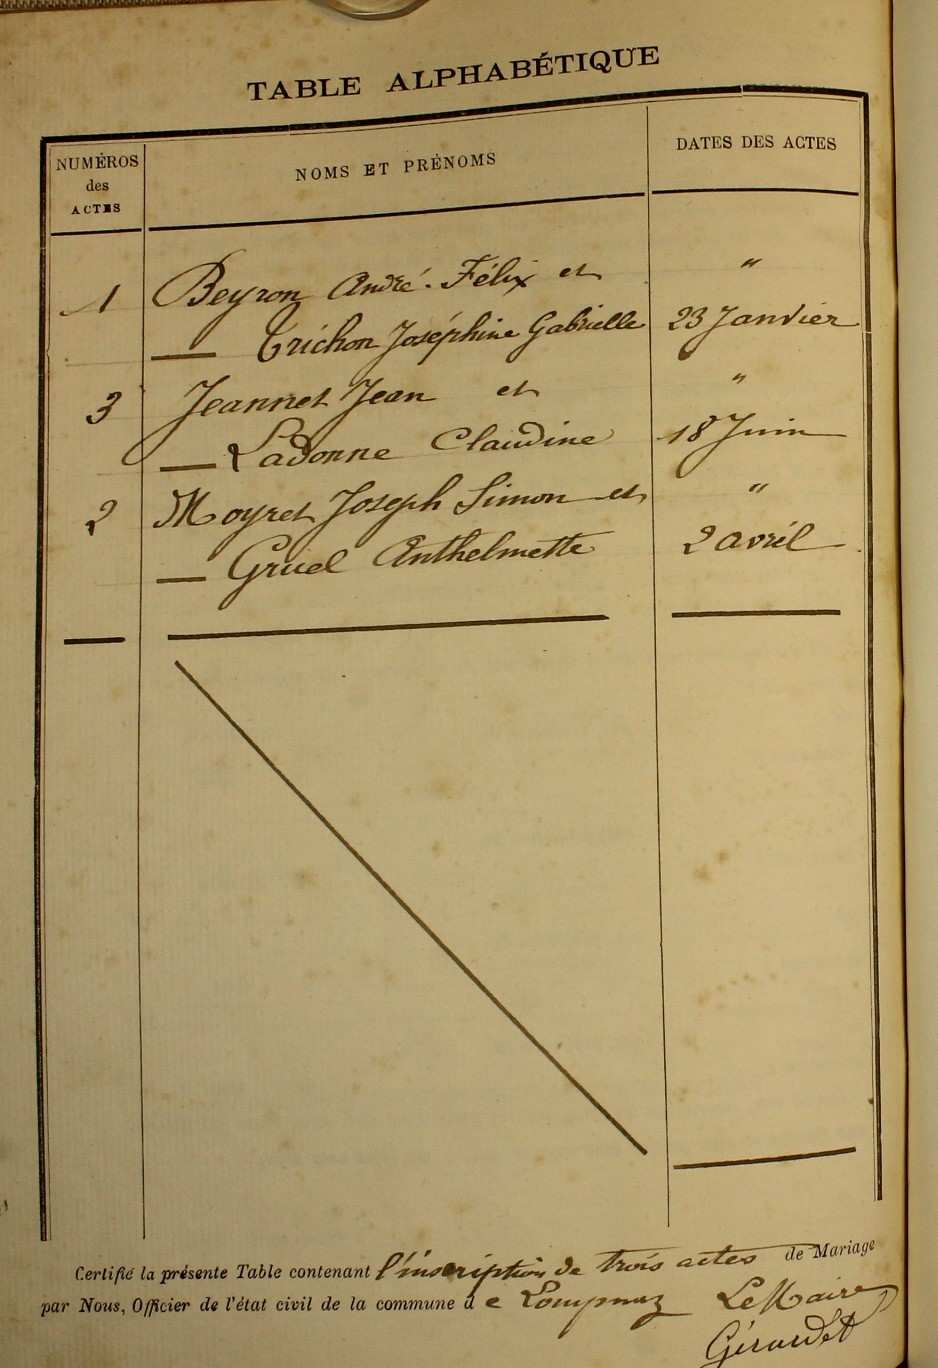 TABLE ALPHABÉTIQUE
NUMÉROS des ACTES
NOMS ET PRÉNOMS
DATES DES ACTES
1 Beyron André-Félix et "
— Trichon Joséphine Gabrielle 23 Janvier
3 Jeannet Jean et "
— Ladonne Claudine 18 Juin
2 Moyret Joseph Simon et "
— Gruel Anthelmette 2 avril
Certifié la présente Table contenant l'inscription de trois actes de Mariage
par Nous, Officier de l'état civil de la commune de Lompnaz Le Maire
Girardet